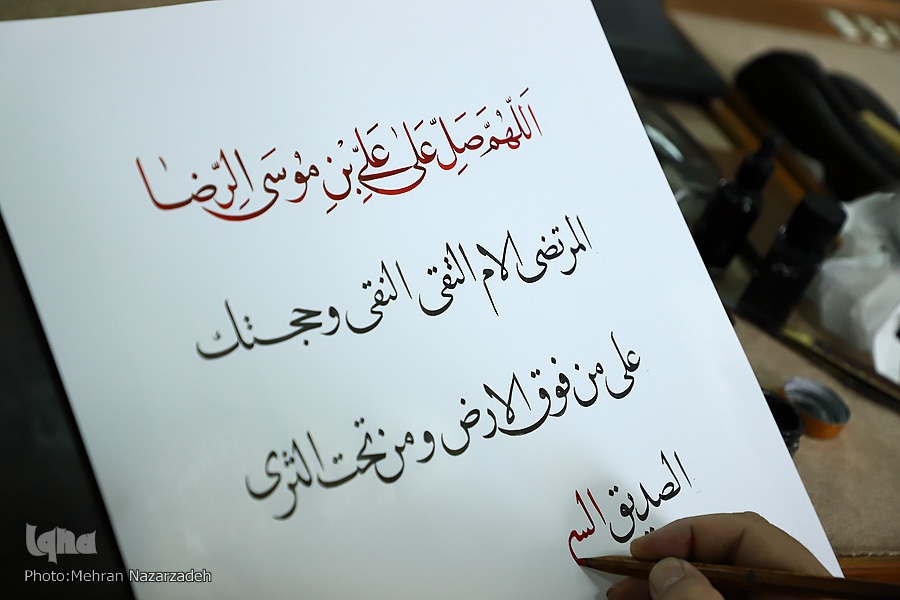 اَللّهُمَّ صَلِّ عَلیٰ عَلِيِّ بْنِ مُوسَی الرِّضٰا
المرتضی الامام التقی النقی و حجتک
علی من فوق الارض و من تحت الثری
الصدیق الشه
Iqna
Photo:Mehran Nazarzadeh